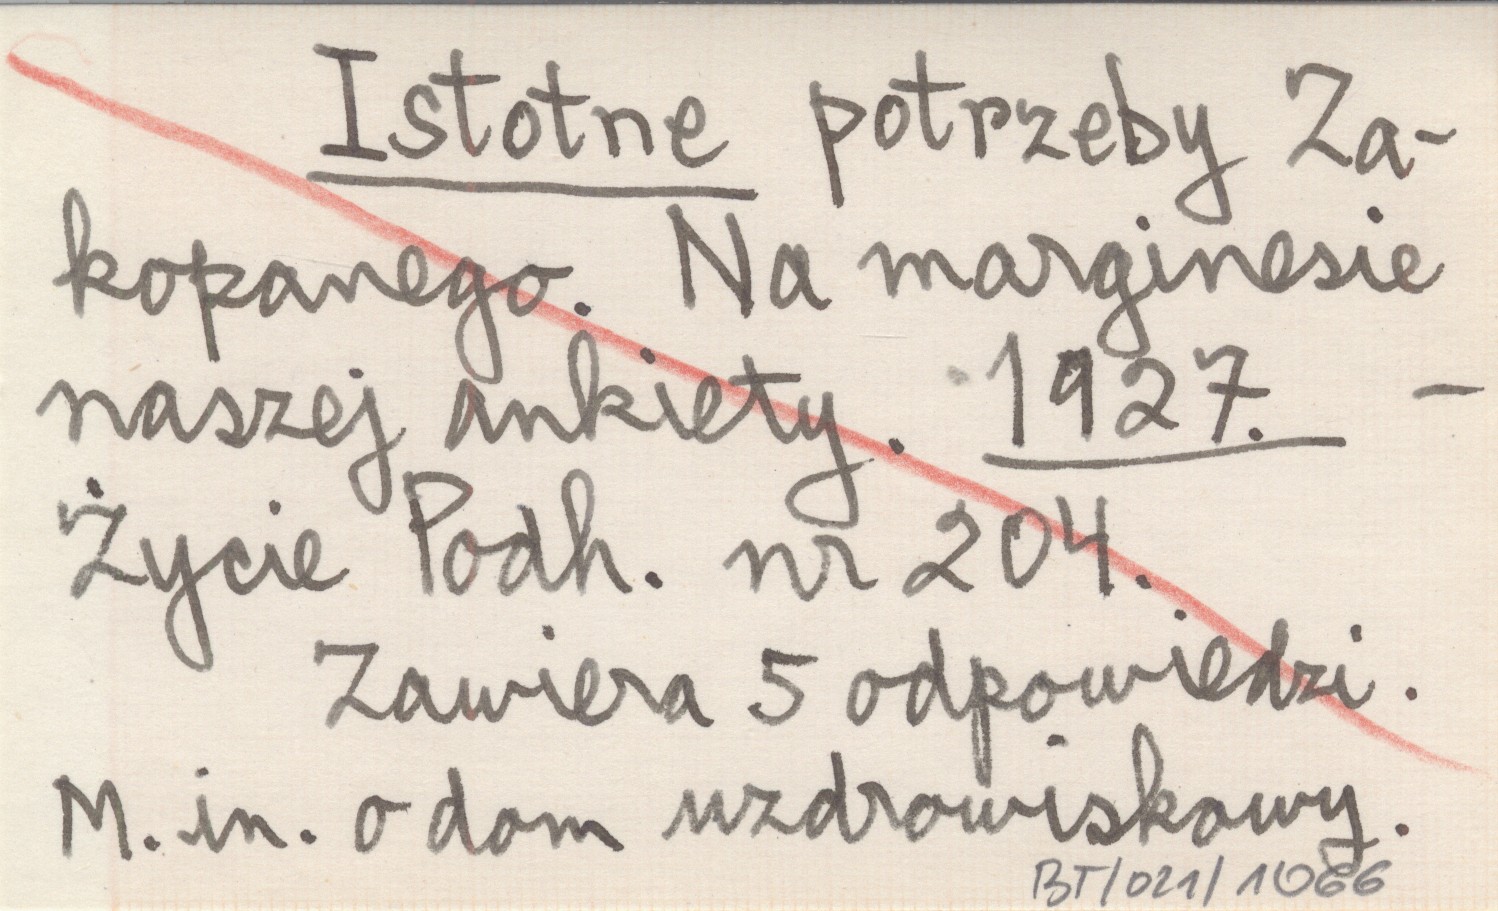 Istotne potrzeby Za-
kopanego. Na marginesie
naszej ankiety. 1927. -
Życie Podh. nr 204.
Zawiera 5 odpowiedzi.
M. in. o dom uzdrowiskowy.
BT/021/1066